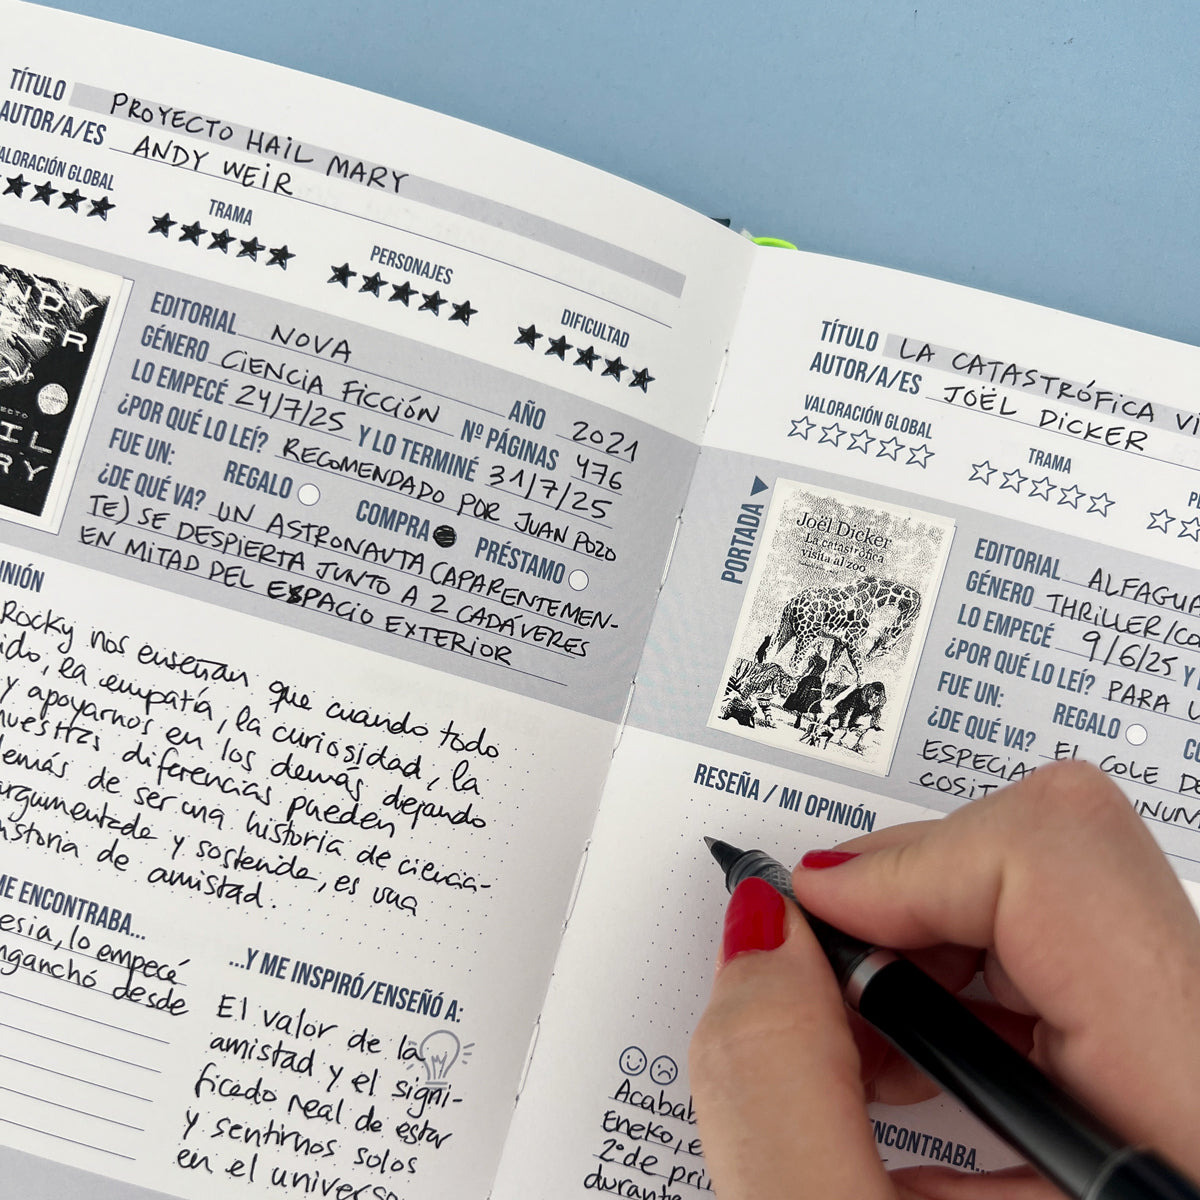 TÍTULO PROYECTO HAIL MARY
AUTOR/A/ES ANDY WEIR
VALORACIÓN GLOBAL
TRAMA
PERSONAJES
DIFICULTAD
EDITORIAL NOVA
AÑO 2021
GÉNERO CIENCIA FICCIÓN
Nº PÁGINAS 476
LO EMPECÉ 24/7/25 Y LO TERMINÉ 31/7/25
¿POR QUÉ LO LEÍ? RECOMENDADO POR JUAN POZO
FUE UN: REGALO COMPRA PRÉSTAMO
¿DE QUÉ VA? UN ASTRONAUTA (APARENTEMEN-
TE) SE DESPIERTA JUNTO A 2 CADÁVERES
EN MITAD DEL ESPACIO EXTERIOR
Rocky nos enseñan que cuando todo
la empatía, la curiosidad, la
y apoyarnos en los demás dejando
nuestras diferencias pueden
demás de ser una historia de ciencia-
argumentada y sostenida, es una
historia de amistad.
ME ENCONTRABA...
lo empecé
enganchó desde
...Y ME INSPIRÓ/ENSEÑÓ A:
El valor de la
amistad y el signi-
ficado real de estar
y sentirnos solos
en el universo
TÍTULO LA CATASTRÓFICA VI
AUTOR/A/ES JOËL DICKER
VALORACIÓN GLOBAL
TRAMA
PORTADA
Joël Dicker
La catastrófica
visita al zoo
EDITORIAL ALFAGUA
GÉNERO THRILLER/CO
LO EMPECÉ 9/6/25 Y
¿POR QUÉ LO LEÍ? PARA
FUE UN: REGALO
¿DE QUÉ VA? EL COLE DE
ESPECIA
COSIT INUN
RESEÑA / MI OPINIÓN
Acabab
Eneko, e
2º de pri
durante
ENCONTRABA...